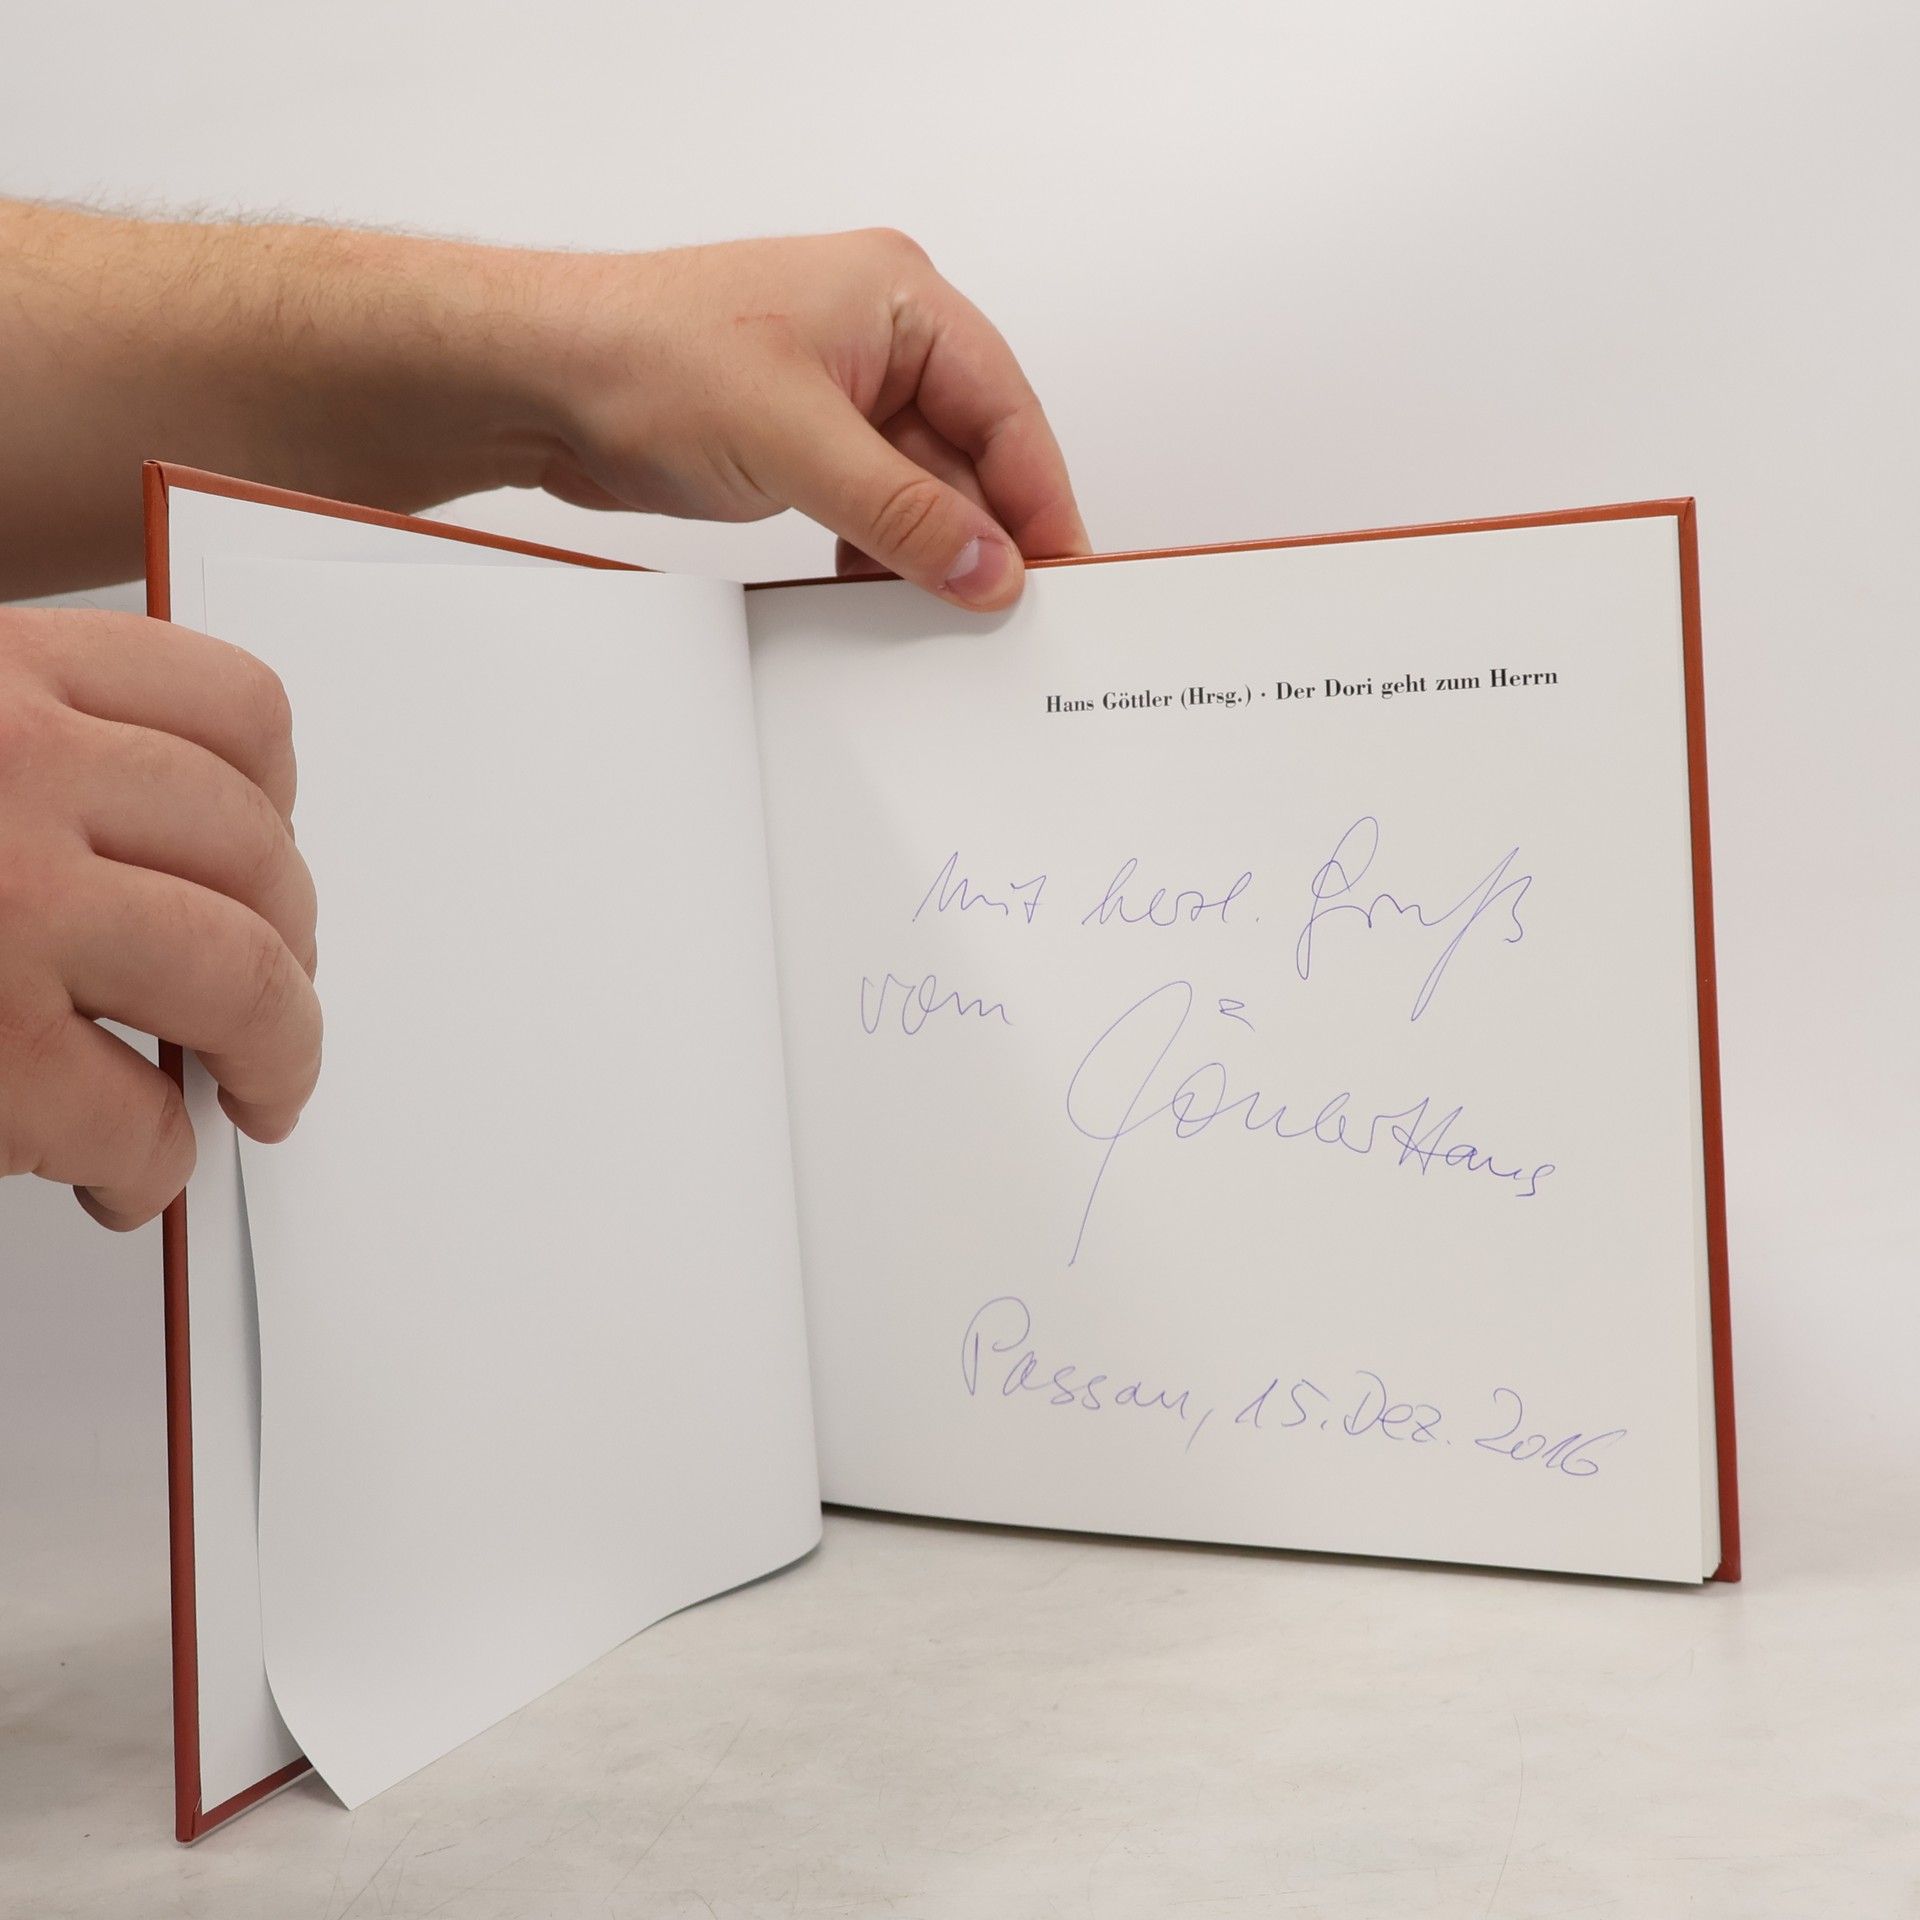 Hans Göttler (Hrsg.) · Der Dori geht zum Herrn
Mit herzl. Gruß
vom
Göttler Hans
Passau, 15. Dez. 2016